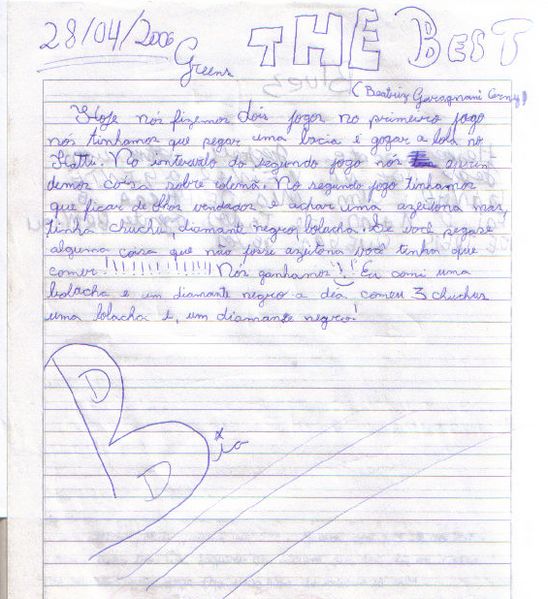 28/04/2006 Greens THE BEST
(Beatriz Garagnani Cerny)
Hoje nós fizemos dois jogos no primeiro jogo
nós tinhamos que pegar uma bacia e gogar a bola no
Hattu. No intervalo do segundo jogo nós apren
demos coisa sobre islemã. No segundo jogo tinhamos
que ficar de olhos vendados e achar uma azeitona mas,
tinha chuchu, diamante negro, bolacha. Se você pegase
alguma coisa que não fosse azeitona você tinha que
comer!!!!!!!!!!! Nós ganhamos!! Eu comi uma
bolacha e um diamante negro a déa comeu 3 chuchus
uma bolacha e, um diamante negro!
Bia